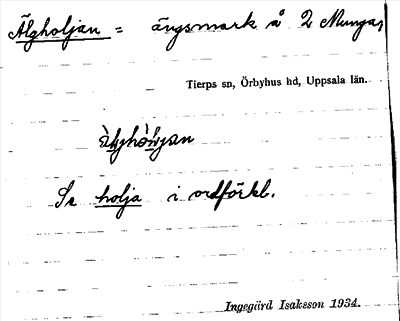 Älgholjan = ängsmark å 2 Munga,
Tierps sn, Örbyhus hd, Uppsala län.
Se holja i ordförkl.
Ingegärd Isaksson 1934.